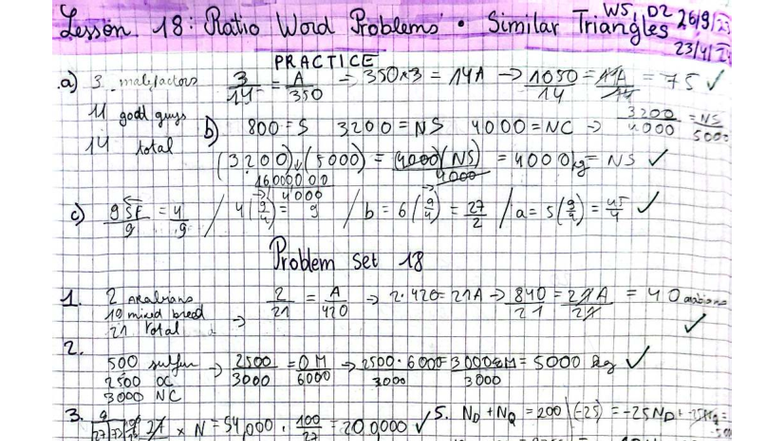 Lesson 18: Ratio Word Problems • Similar Triangles
W5, D2 26/9/23
23/4/2
PRACTICE
a) 3 malefactors 3/14 = A/350 = 350×3 = 14A → 1050/14 = 14A/14 = 75 ✓
11 good guys
14 total
b) 800 = S 3200 = NS 4000 = NC → 3200/4000 = NS/5000
(3200)(5000) = (4000)(NS)/4000 = 4000kg = NS ✓
16000000
4000
c) 9SF/9 = 4/9 / 4(9/4) = 9 / b = 6(9/4) = 27/2 / a = 5(9/4) = 45/4 ✓
Problem Set 18
1. 2 Arabians 2/21 = A/420 → 2·420 = 21A → 840/21 = 21A/21 = 40 ✓
19 mixed breed
21 total
2.
500 sulfur → 2500/3000 = OM/6000 → 2500·6000/3000 = 3000 OM/3000 = 5000 kg ✓
2500 OC
3000 NC
3. × N = 54,000 · 100/27 = 200000 ✓ 5. ND + NQ = 200 (-25) = -25ND